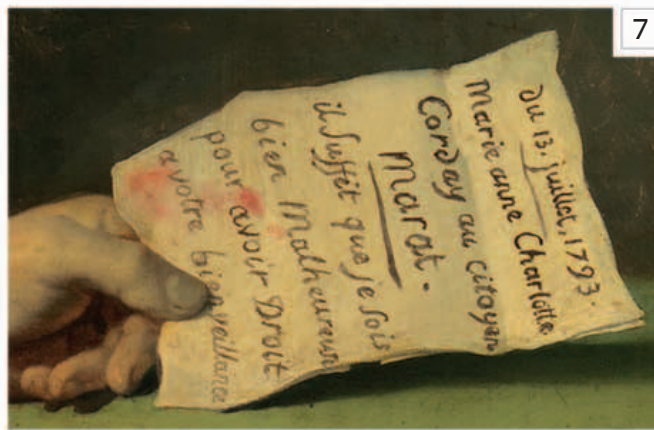 7
du 13. juillet, 1793.
Marie anne Charlotte
Corday au citoyen
Marat.
il suffit que je sois
bien Malheureuse
pour avoir Droit
a votre bienveillance